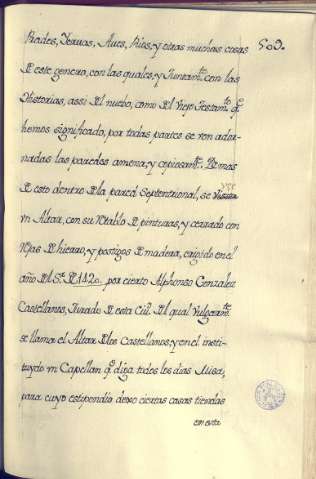 Prados, Yeruas, Aues, Rios, y otras muchas cosas
509.
de este genero, con las quales, y Juntamte. con las
Historias, assi del nuebo, como del Viejo Testamto. q
hemos significado, por todas partes se ven ador-
nadas las paredes amena, y copiosamte. De mas
de esto dentro de la pared Septentrional, se
vn Altar, con su Retablo de pinturas, y cerrado con
Rejas de hierro, y postigos de madera, erigido en el
año del Sr. de 1420. por cierto Alphonso Gonzalez
Castellanos, Jurado de esta Ciud. del qual Vulgarmte.
se llama el Altar de los Castellanos; y en el insti-
tuydo vn Capellan q diga todos los dias Missa,
para cuyo estipendio dexo ciertas casas tiendas
en esta